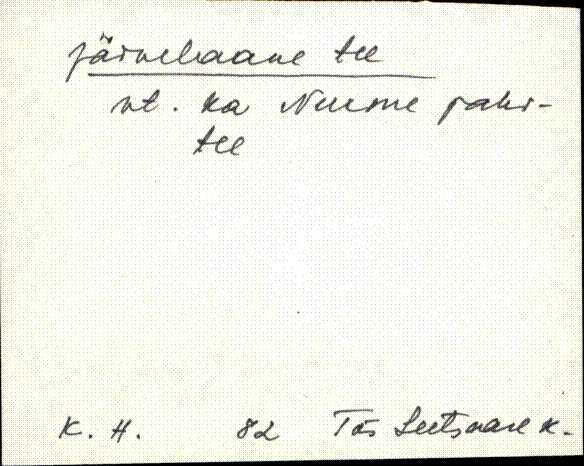 järvehaane tee
vt. ka Nurme pahr-
tee
K. H. 82 Tõs Seetsmare k.